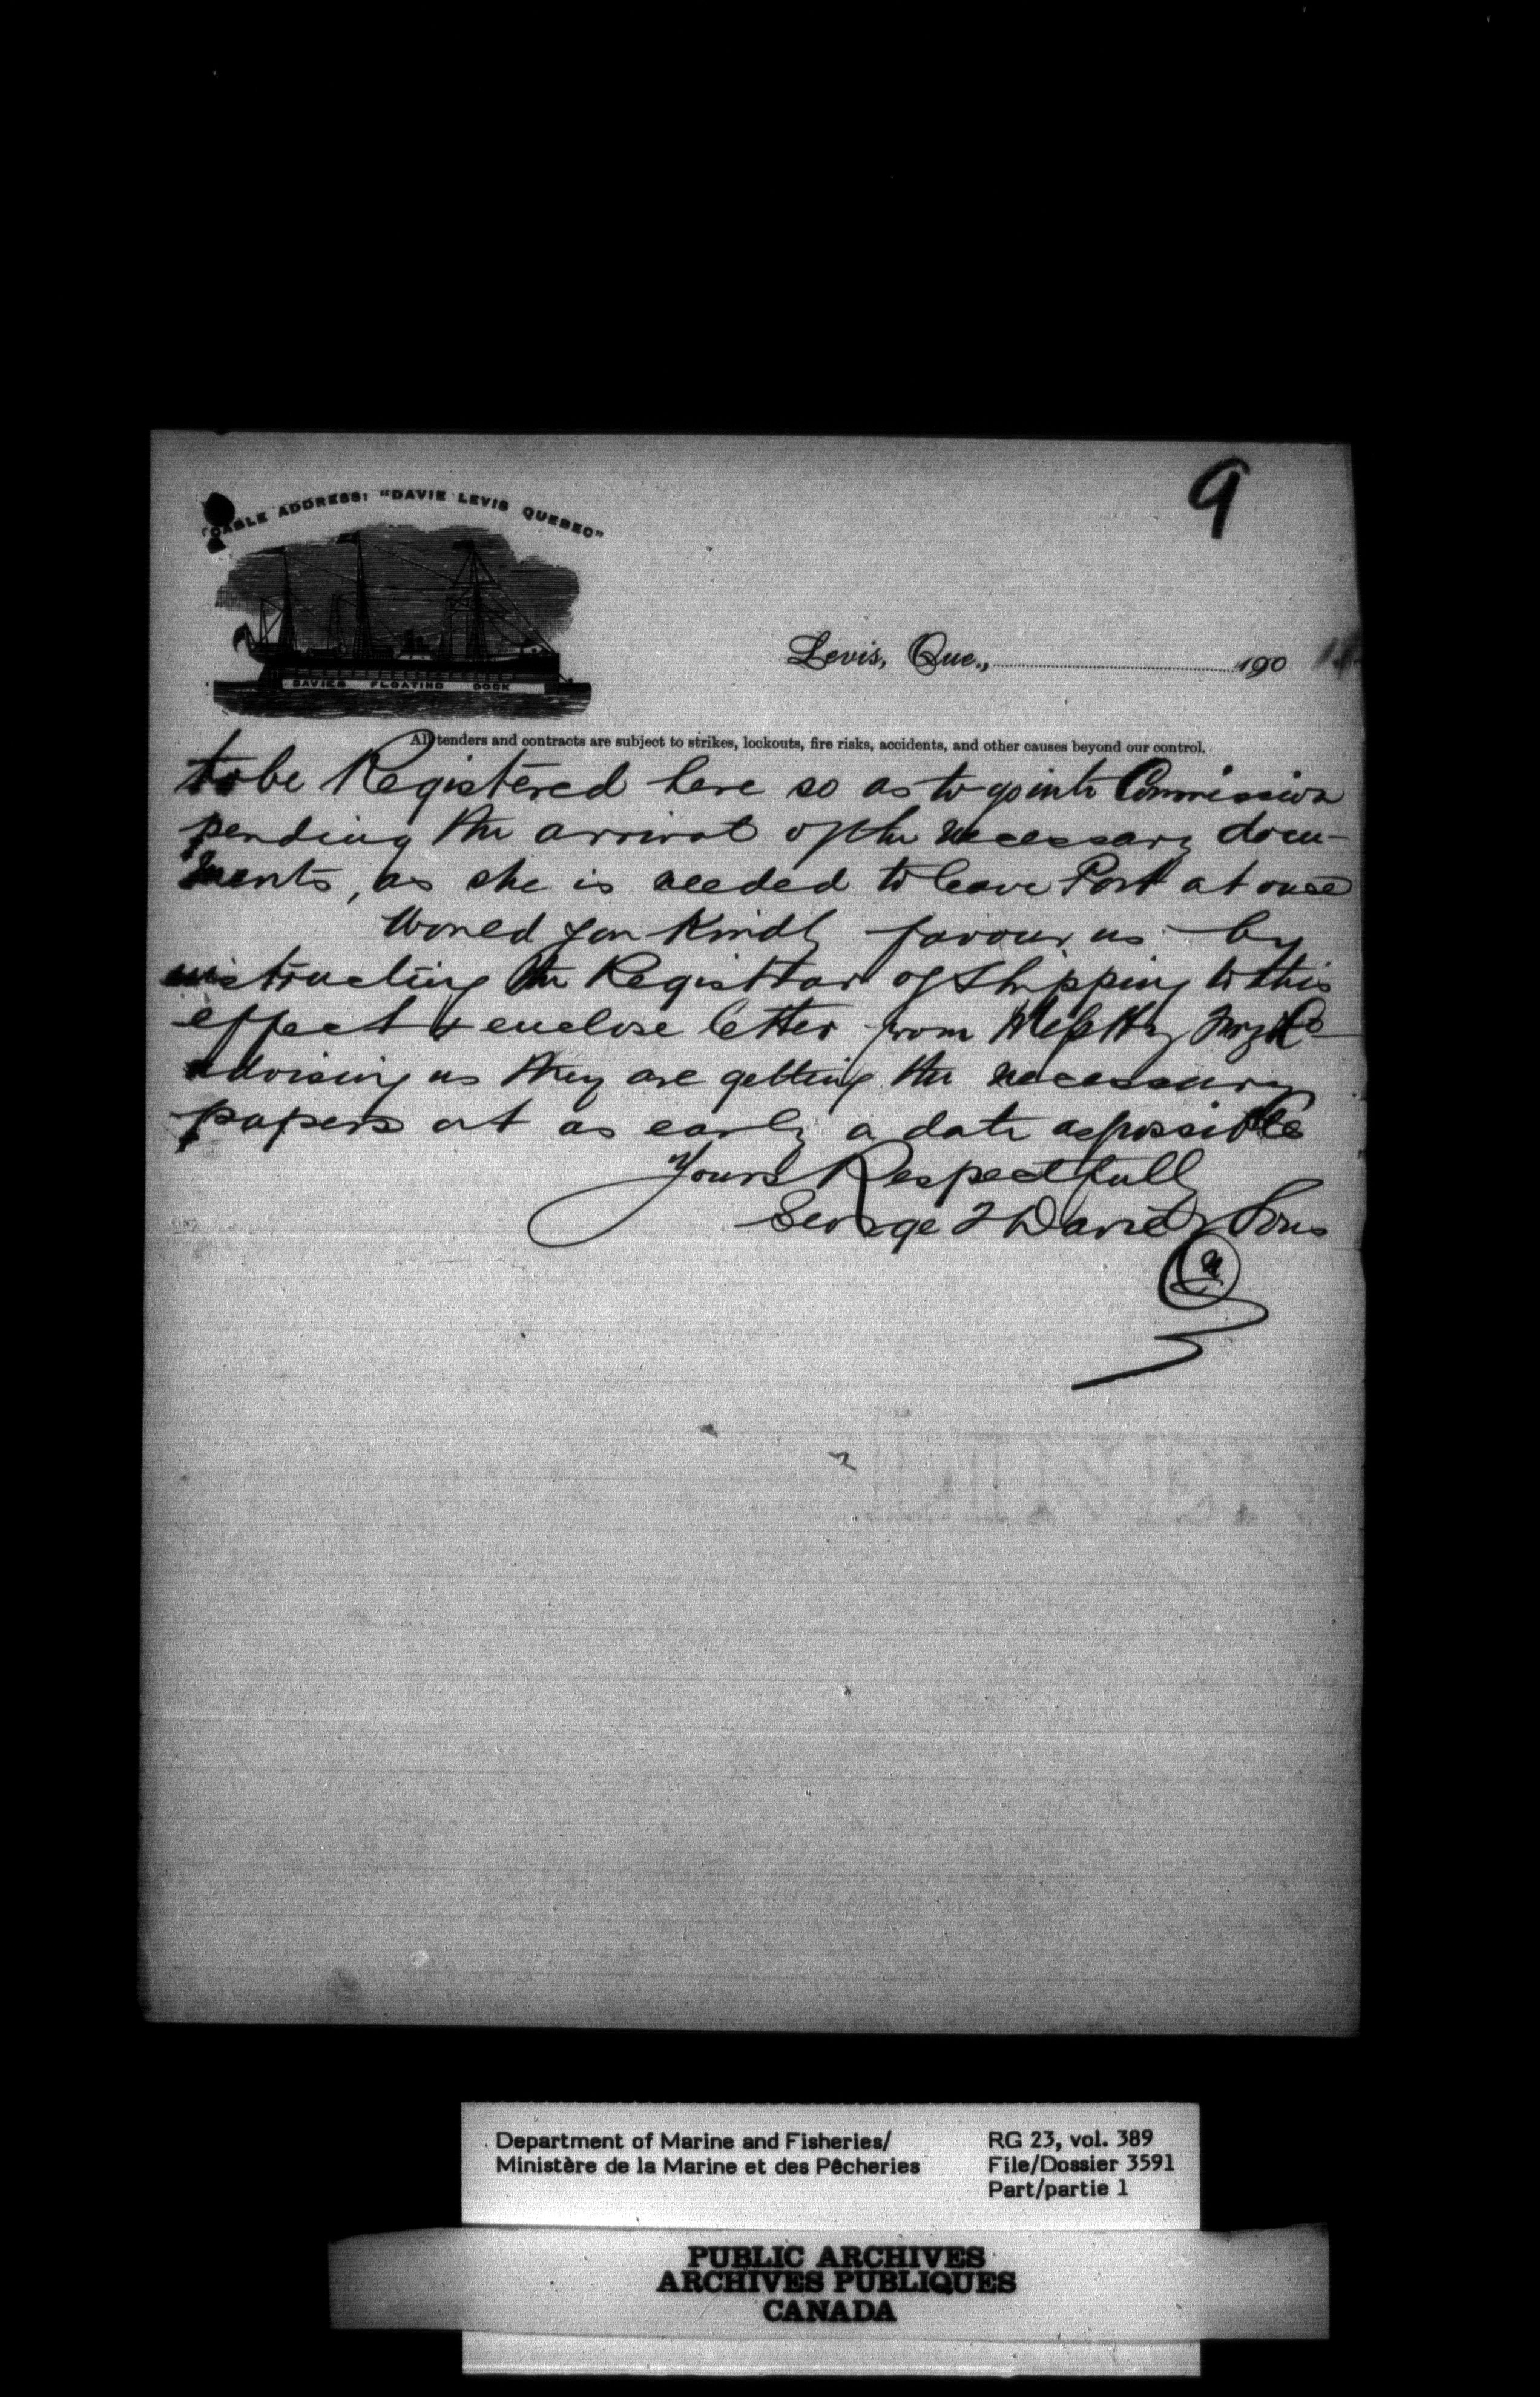 9
"CABLE ADDRESS: "DAVIE LEVIS QUEBEC"
DAVIES FLOATING DOCK
Levis, Que., 190
All tenders and contracts are subject to strikes, lockouts, fire risks, accidents, and other causes beyond our control.
to be Registered here so as to go into Commission
pending the arrival of the necessary docu-
ments, as she is needed to leave Port at once
Would you Kindly favour us by
instructing the Registrar of Shipping to this
effect & enclose letter from
advising us they are getting the necessary
papers at as early a date as possible
Yours Respectfully
George T Davie & Sons
Department of Marine and Fisheries/
Ministère de la Marine et des Pêcheries
RG 23, vol. 389
File/Dossier 3591
Part/partie 1
PUBLIC ARCHIVES
ARCHIVES PUBLIQUES
CANADA